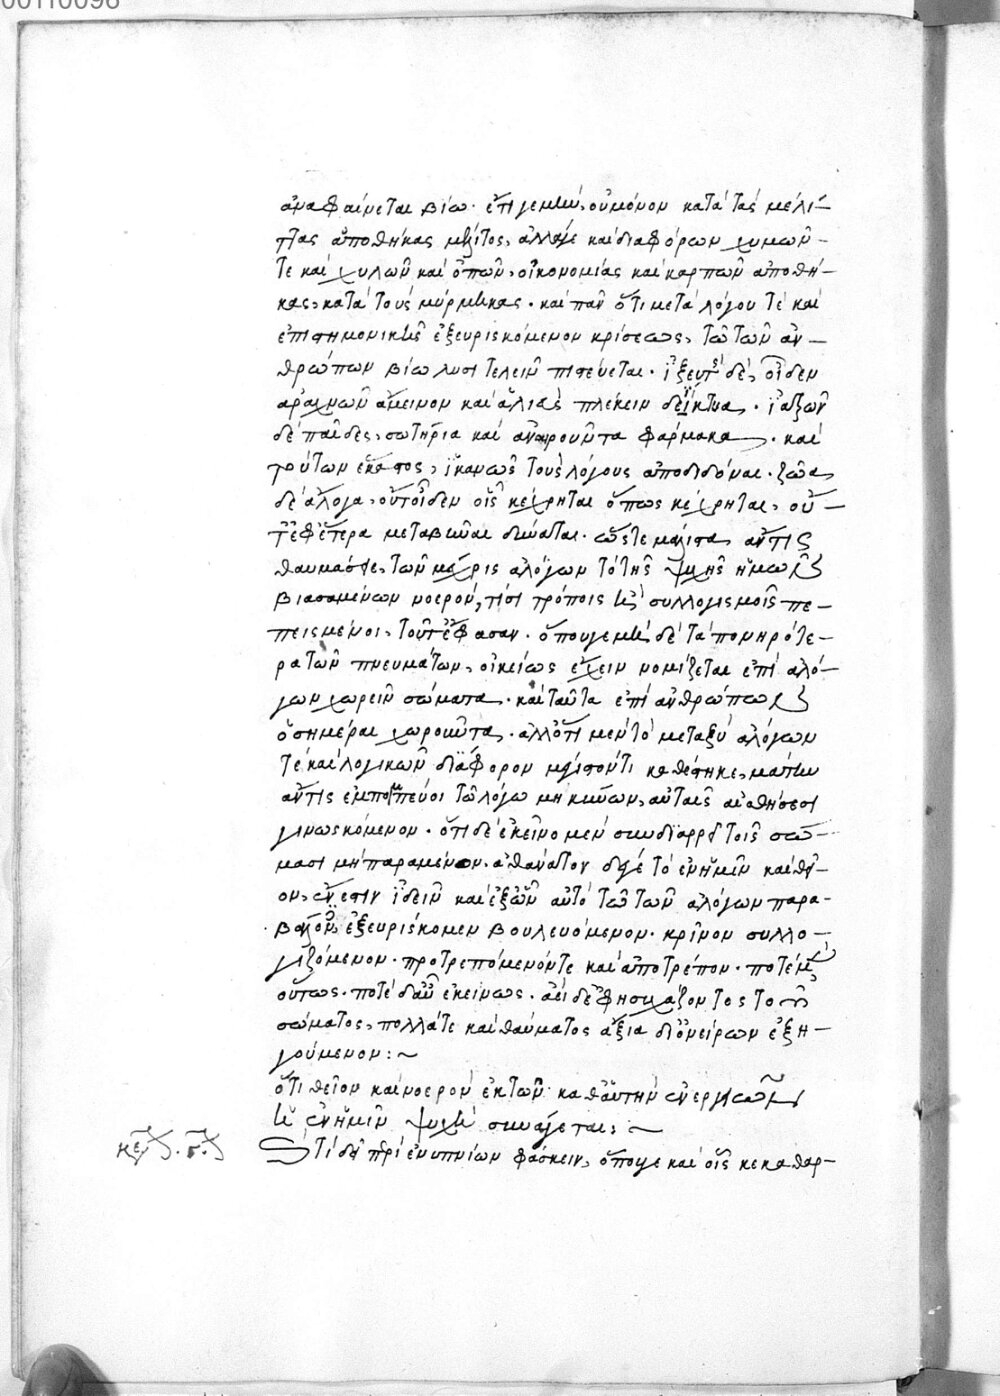 00110098
ἀναφαίνεται βίῳ· ἔτι γε μὴν, οὐ μόνον κατὰ τὰς μελί-
ττας ἀποθήκας μέλιτος, ἀλλά γε καὶ διαφόρων χυμῶν
τὲ καὶ χυλῶν καὶ ὀπῶν, οἰκονομίας καὶ καρπῶν ἀποθή-
κας, κατὰ τοὺς μύρμηκας· καὶ πᾶν ὅτι μετὰ λόγου τὲ καὶ
ἐπιστημονικῆς ἐξευρισκόμενον κρίσεως, τῶ τῶν ἀν-
θρώπων βίω λυσιτελεῖν πιστεύεται· ἰξευτὴς δὲ, οἶδεν
ἀραχνῶν ἄμεινον καὶ ἁλιεὺς πλέκειν δίκτυα· ἰατρῶν
δὲ παῖδες, σωτήρια καὶ ἀναιροῦντα φάρμακα· καὶ
τούτων ἕκαστος, ἱκανῶς τοὺς λόγους ἀποδιδόναι· ζῶα
δὲ ἄλογα, οὔτ' οἶδεν οἷς κέχρηται ὅπως κέχρηται, οὔ-
τ' ἐφ' ἕτερα μεταβῆναι δύναται· ὥστε μάλιστα ἄν τις
θαυμάσειε, τῶν μέχρις ἀλόγων τὸ τῆς ψυχῆς ἡμῶν
βιασαμένων νοερὸν, τίσι τρόποις ἢ συλλογισμοῖς πε-
πεισμένοι, τοῦτ' ἔφασαν· ὅπου γε μὴ δὲ τὰ πονηρότε-
ρα τῶν πνευμάτων, οἰκείως ἔχειν νομίζεται ἐπὶ ἀλό-
γων χωρεῖν σώματα· καὶ ταῦτα ἐπὶ ἀνθρώπων
ὁσημέραι χωροῦντα· ἀλλ' ὅτι μὲν τὸ μεταξὺ ἀλόγων
τὲ καὶ λογικῶν διάφορον μέγιστόν τι καθέστηκε, μάτην
ἄν τις ἐμπομπεύοι τῶ λόγω μηκύνων, αὐταῖς αἰσθήσεσι
γινωσκόμενον· ὅτι δὲ ἐκεῖνο μὲν συνδιαρρεῖ τοῖς σώ-
μασι μὴ παραμένον· ἀθάνατον δέ γε τὸ ἐν ἡμῖν καὶ θεῖ-
ον, ἔνεστιν ἰδεῖν καὶ ἐξ ὧν αὐτὸ τῶ τῶν ἀλόγων παρα-
βαλὸν, ἐξευρίσκομεν βουλευόμενον· κρῖνον συλλο-
γιζόμενον· προτρεπόμενόν τε καὶ ἀποτρέπον· ποτὲ μὲν
οὕτως· ποτὲ δ' αὖ ἐκείνως· ἀεὶ δὲ ἐφησυχάζοντος τοῦ
σώματος, πολλά τε καὶ θαύματος ἄξια δι' ὀνείρων ἐξη-
γούμενον:~
ὅτι θεῖον καὶ νοερὸν ἐκ τῶν καθ' αὑτὴν ἐνεργειῶν
ἡ ἐν ἡμῖν ψυχὴ συνάγεται:~
Ὅτι δὲ περὶ ἐνυπνίων φάσκειν, ὅπου γε καὶ οἷς κεκαθαρ-